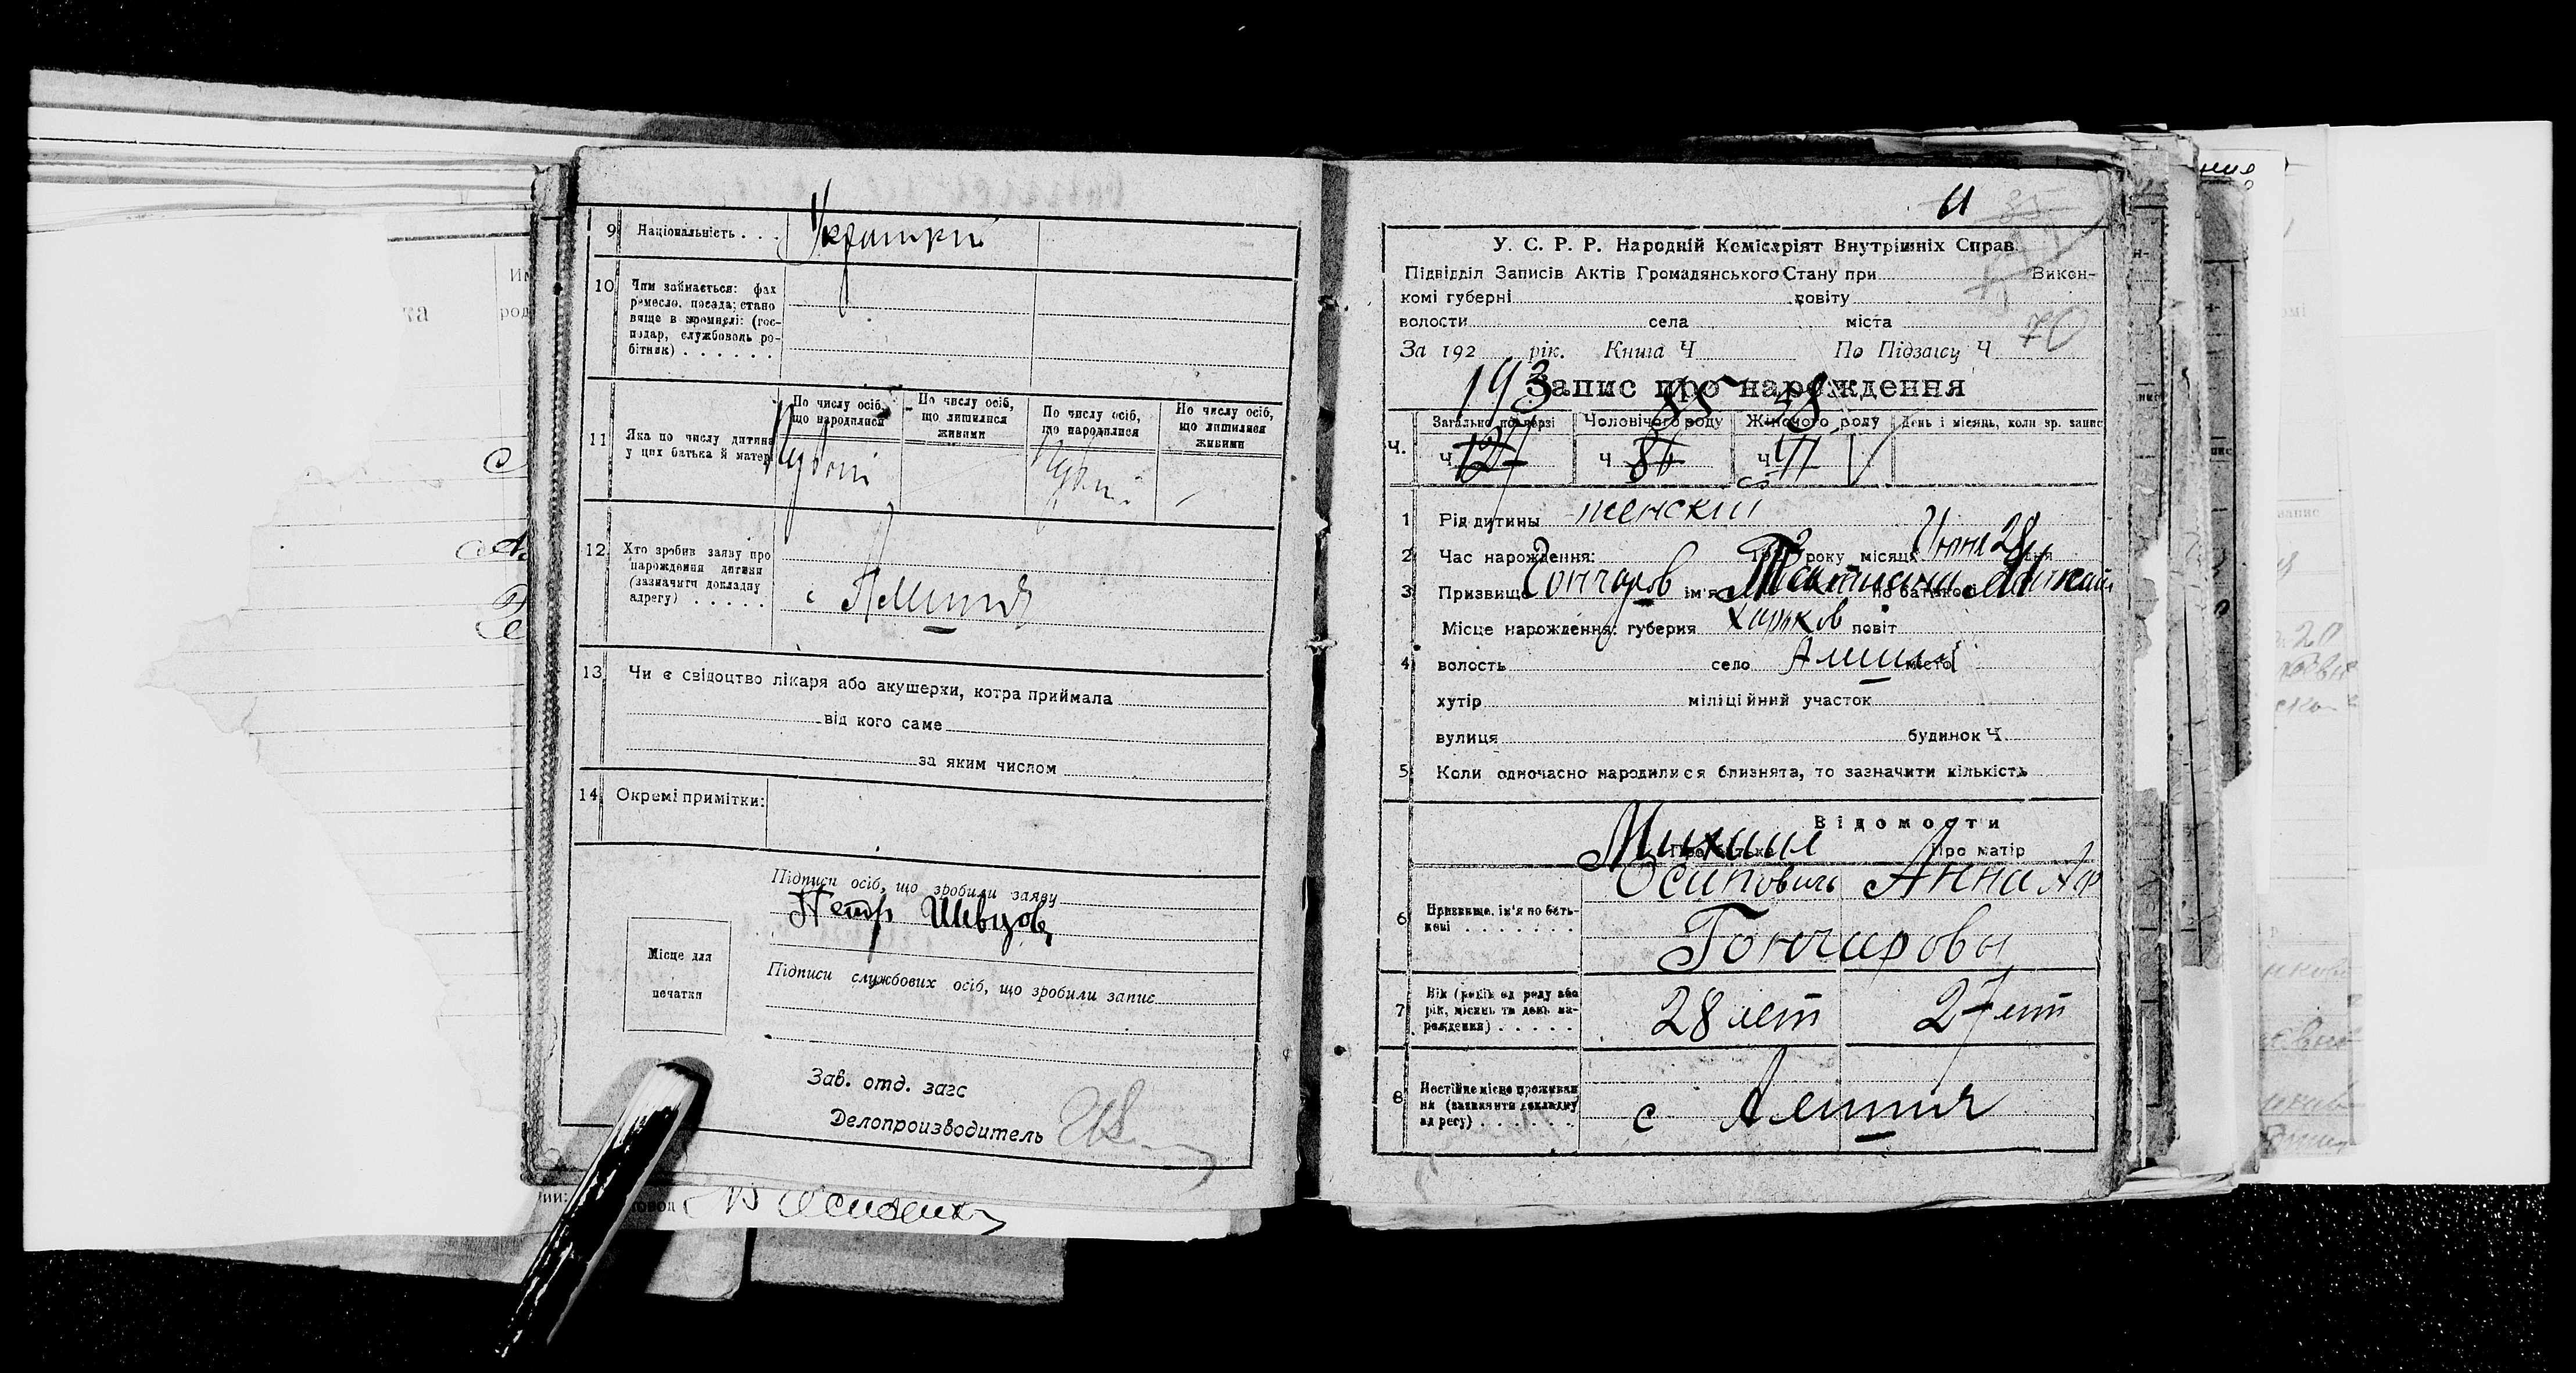 9 Національність . . . Украинри
10 Чим займається: фах
ремесло, посада; стано
вище в промислі: (гос-
подар, службовець ро-
бітник) . . . . . .
11 Яка по числу дитина
у цих батька й матері
По числу осіб,
що народилися
По числу осіб,
що лишилися
живими
По числу осіб,
що народилися
По числу осіб,
що лишилися
живими
12 Хто зробив заяву про
нарождення дитини
(зазначити докладну
адрегу) . . . . .
с
13 Чи є свідоцтво лікаря або акушерки, котра приймала
від кого саме
за яким числом
14 Окремі примітки:
Підписи осіб, що зробили заяву
Петр Швцов
Місце для
печатки
Підписи службових осіб, що зробили запис
Зав. отд. загс
Делопроизводитель
61
У. С. Р. Р. Народній Комісаріят Внутрішніх Справ
Підвідділ Записів Актів Громадянського Стану при Викон-
комі губерні повіту
волости села міста
70
За 192 рік. Книга Ч По Підзапису Ч
Запис про нарождення
193 85 58
Загально по черзі Чоловічого роду Жіночого роду День і місяць, коли зр. запис
Ч. Ч 127 Ч 86 Ч 41
1 Рід дитины женский
2 Час нарождення: року місяця Июня 28 дня
3 Призвище Гончаров ім'я Татиана по батькові Михайл
Місце нарождення: губерня Харьков повіт
4 волость село місто
хутір міліційний участок
вулиця будинок Ч.
5 Коли одночасно народилися близнята, то зазначити кількість
Відомости
Про батька Про матір
Михаил
Осипович Анна Аф
6 Призвище, ім'я по бать-
кові . . . . . . .
Гончаровы
7 Вік (років од роду або
рік, місяць та день на-
рождення) . . . . .
28 лет 27 лет
8 Постійне місце проживан
ня (зазначити докладну
адресу) . . . . . . .
с